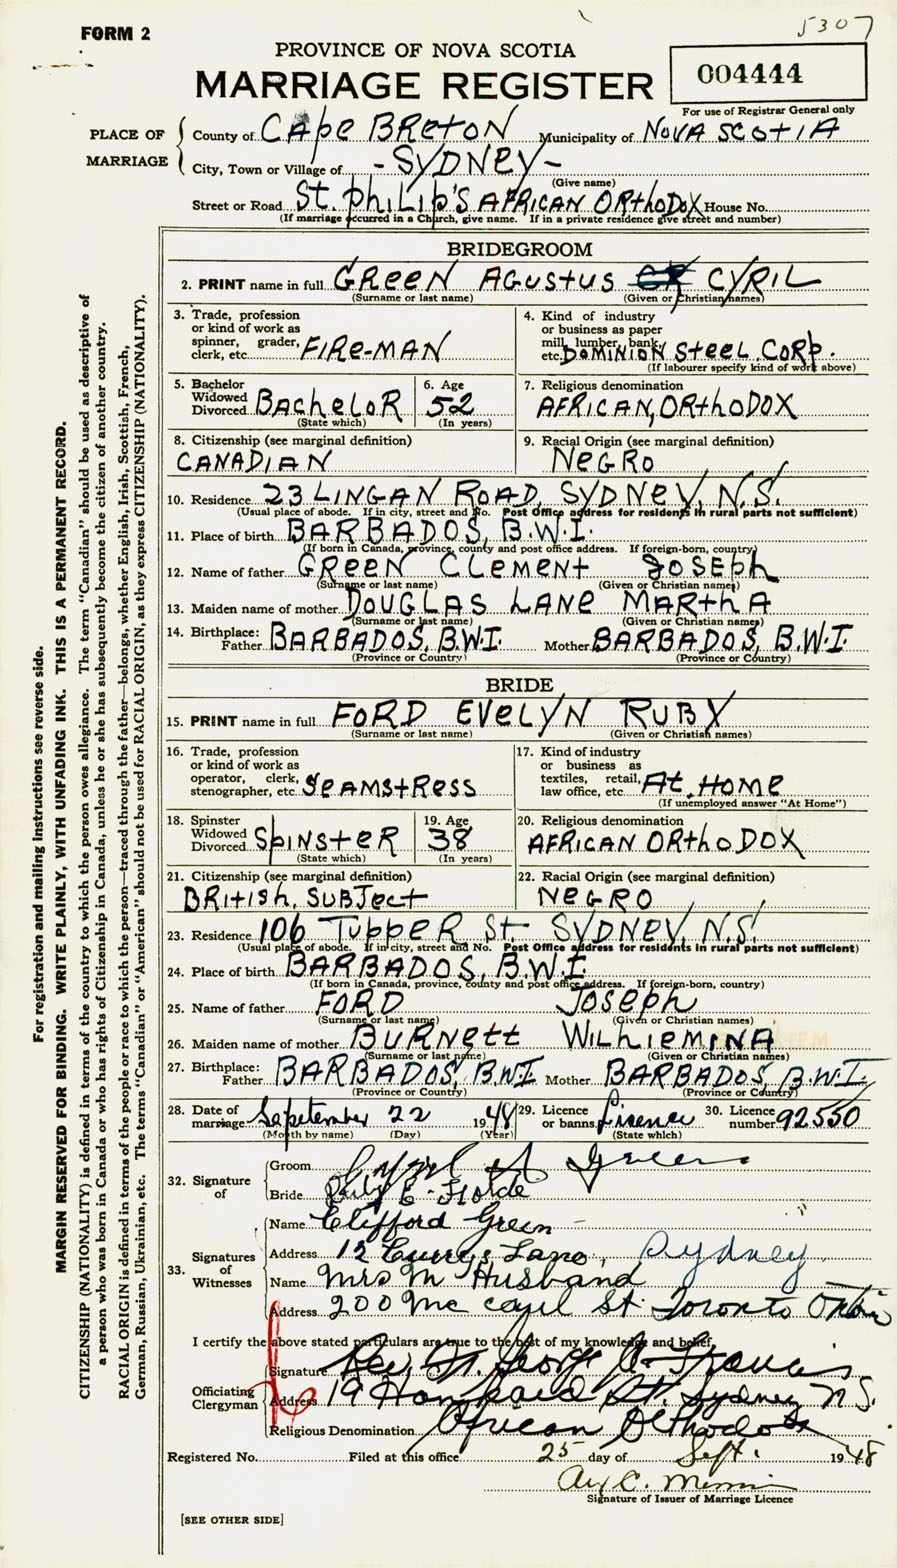 5307
FORM 2
PROVINCE OF NOVA SCOTIA
MARRIAGE REGISTER
004444
For use of Registrar General only
PLACE OF MARRIAGE
County of CApe BReton Municipality of NOVA SCOTIA
City, Town or Village of -SYDNEY-
(Give name)
Street or Road St. philip's AFRICAN ORthodox House No.
(If marriage occurred in a Church, give name. If in a private residence give street and number)
BRIDEGROOM
2. PRINT name in full GReeN AGustus CYRIL
(Surname or last name) (Given or Christian names)
3. Trade, profession or kind of work as spinner, grader, clerk, etc. FIRe-MAN
4. Kind of industry or business as paper mill, lumber, bank, etc. DOMINION Steel CORp.
(If labourer specify kind of work above)
5. Bachelor Widowed Divorced BACheloR
(State which)
6. Age 52
(In years)
7. Religious denomination
AFRICAN, ORthoDOX
8. Citizenship (see marginal definition)
CANADIAN
9. Racial Origin (see marginal definition)
NeGRO
10. Residence 23 LINGAN ROAD, SYDNeY, N.S.
(Usual place of abode. If in city, street and No. Post Office address for residents in rural parts not sufficient)
11. Place of birth BARBADOS, B.W.I.
(If born in Canada, province, county and post office address. If foreign-born, country)
12. Name of father GReeN Clement Joseph
(Surname or last name) (Given or Christian names)
13. Maiden name of mother DOUGLAS LANe MARthA
(Surname or last name) (Given or Christian names)
14. Birthplace: Father BARBADOS, B.W.I. Mother BARBADOS, B.W.I.
(Province or Country) (Province or Country)
BRIDE
15. PRINT name in full FORD EVelYN RUBY
(Surname or last name) (Given or Christian names)
16. Trade, profession or kind of work as operator, clerk, stenographer, etc. SeAMstRess
17. Kind of industry or business as textiles, retail, law office, etc. At HOMe
(If unemployed answer "At Home")
18. Spinster Widowed Divorced SpINsteR
(State which)
19. Age 38
(In years)
20. Religious denomination
AFRICAN ORthoDOX
21. Citizenship (see marginal definition)
BRitish, SUBJect
22. Racial Origin (see marginal definition)
NeGRO
23. Residence 106 TuppeR St. SYDNeY N.S.
(Usual place of abode. If in city, street and No. Post Office address for residents in rural parts not sufficient)
24. Place of birth BARBADOS, B.W.I.
(If born in Canada, province, county and post office address. If foreign-born, country)
25. Name of father FORD Joseph
(Surname or last name) (Given or Christian names)
26. Maiden name of mother BURNett WILhIeMINA
(Surname or last name) (Given or Christian names)
27. Birthplace: Father BARBADOS, B.W.I Mother BARBADOS, B.W.I.
(Province or Country) (Province or Country)
28. Date of marriage September 22 1948
(Month by name) (Day) (Year)
29. Licence or banns Lisence
(State which)
30. Licence number 92550
32. Signature of
Groom Cyril A Green
Bride Ruby E. Forde
33. Signatures of Witnesses
Name Clifford Green
Address 12 Currys Lane, Sydney
Name Mrs M Husband
Address 200 Mc Caul St. Toronto
I certify the above stated particulars are true to the best of my knowledge and belief.
Officiating Clergyman
Signature Rev. George A. Francis
Address 19 St. Sydney N.S.
Religious Denomination African Orthodox
Registered No. Filed at this office 25 day of Sept. 1948
C.
Signature of Issuer of Marriage Licence
[SEE OTHER SIDE]
For registration and mailing instructions see reverse side.
MARGIN RESERVED FOR BINDING. WRITE PLAINLY, WITH UNFADING INK. THIS IS A PERMANENT RECORD.
CITIZENSHIP (NATIONALITY) is defined in terms of the country to which the person owes allegiance. The term "Canadian" should be used as descriptive of
a person who was born in Canada or who has rights of Citizenship in Canada, unless he or she has subsequently become the citizen of another country.
RACIAL ORIGIN is defined in terms of the people or race to which the person—traced through the father—belongs, whether English, Irish, Scottish, French,
German, Russian, Ukrainian, etc. The terms "Canadian" or "American" should not be used for RACIAL ORIGIN, as they express CITIZENSHIP (NATIONALITY).